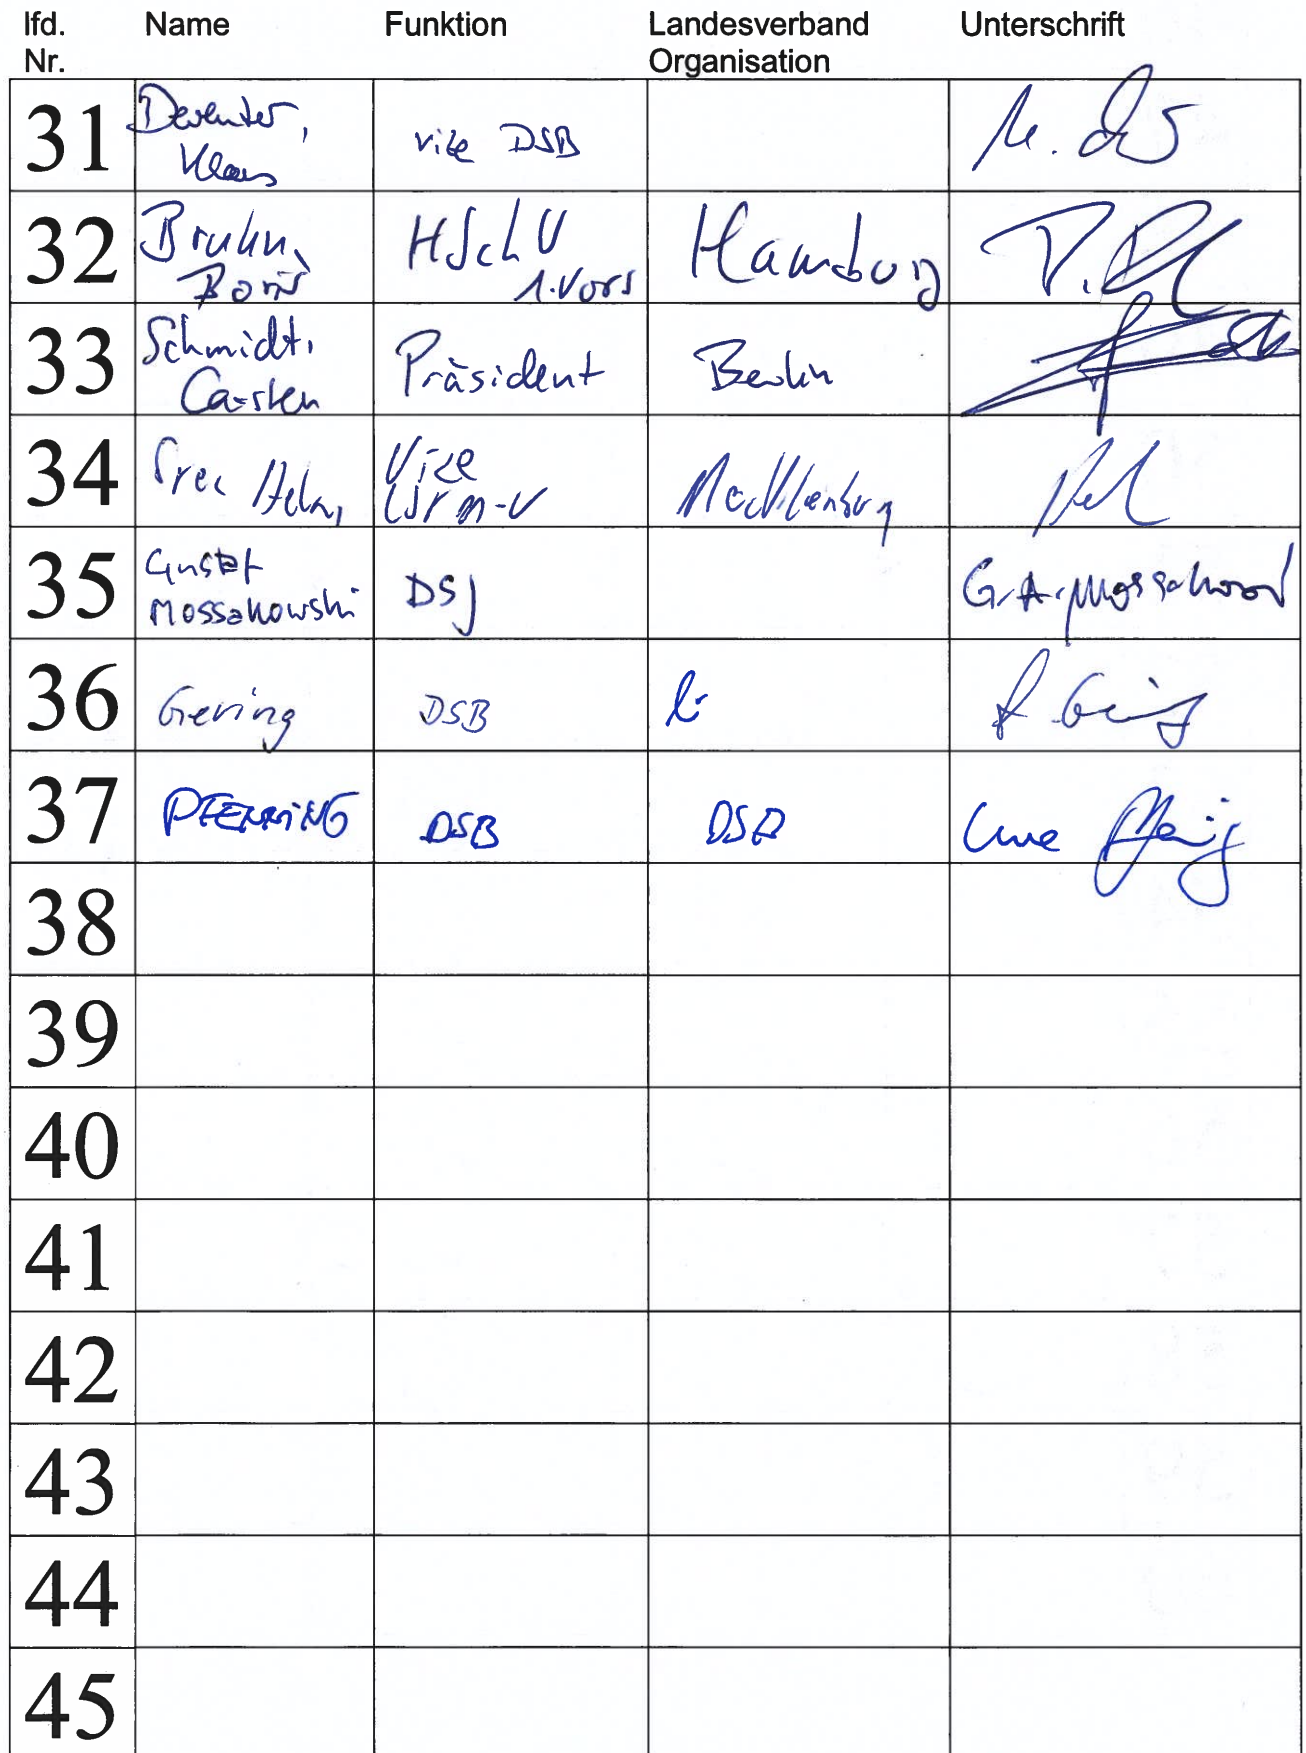 lfd. Nr. Name Funktion Landesverband Organisation Unterschrift
31 Deventer, Klaus vize DSB
32 Bruhn, Boris HSchV 1. Vors Hamburg
33 Schmidt, Carsten Präsident Berlin
34 Vize LSV M-V Mecklenburg
35 Gustaf Mossakowski DSJ G. A. Mossakowski
36 Gering DSB
37 PFENNING DSB DSB Uwe Pfenning
38
39
40
41
42
43
44
45